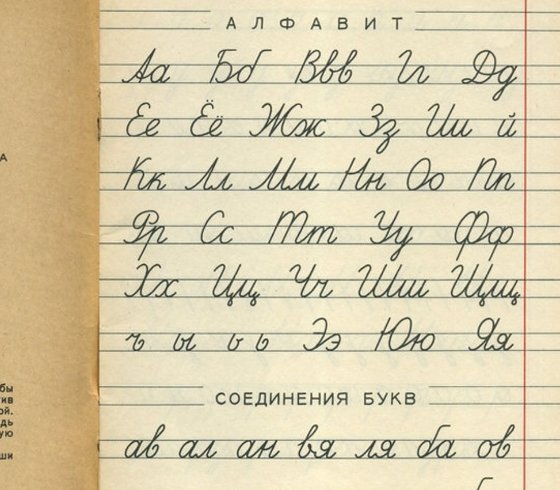 АЛФАВИТ
Аа Бб Ввв Гг Дд
Ее Ёё Жж Зз Ии й
Кк Лл Мм Нн Оо Пп
Рр Сс Тт Уу Фф
Хх Цц Чч Шш Щщ
ъ ы ь ь Ээ Юю Яя
СОЕДИНЕНИЯ БУКВ
ав ал ан вя ля ба ов
А
бы
ив
ой.
дь
ую
ши